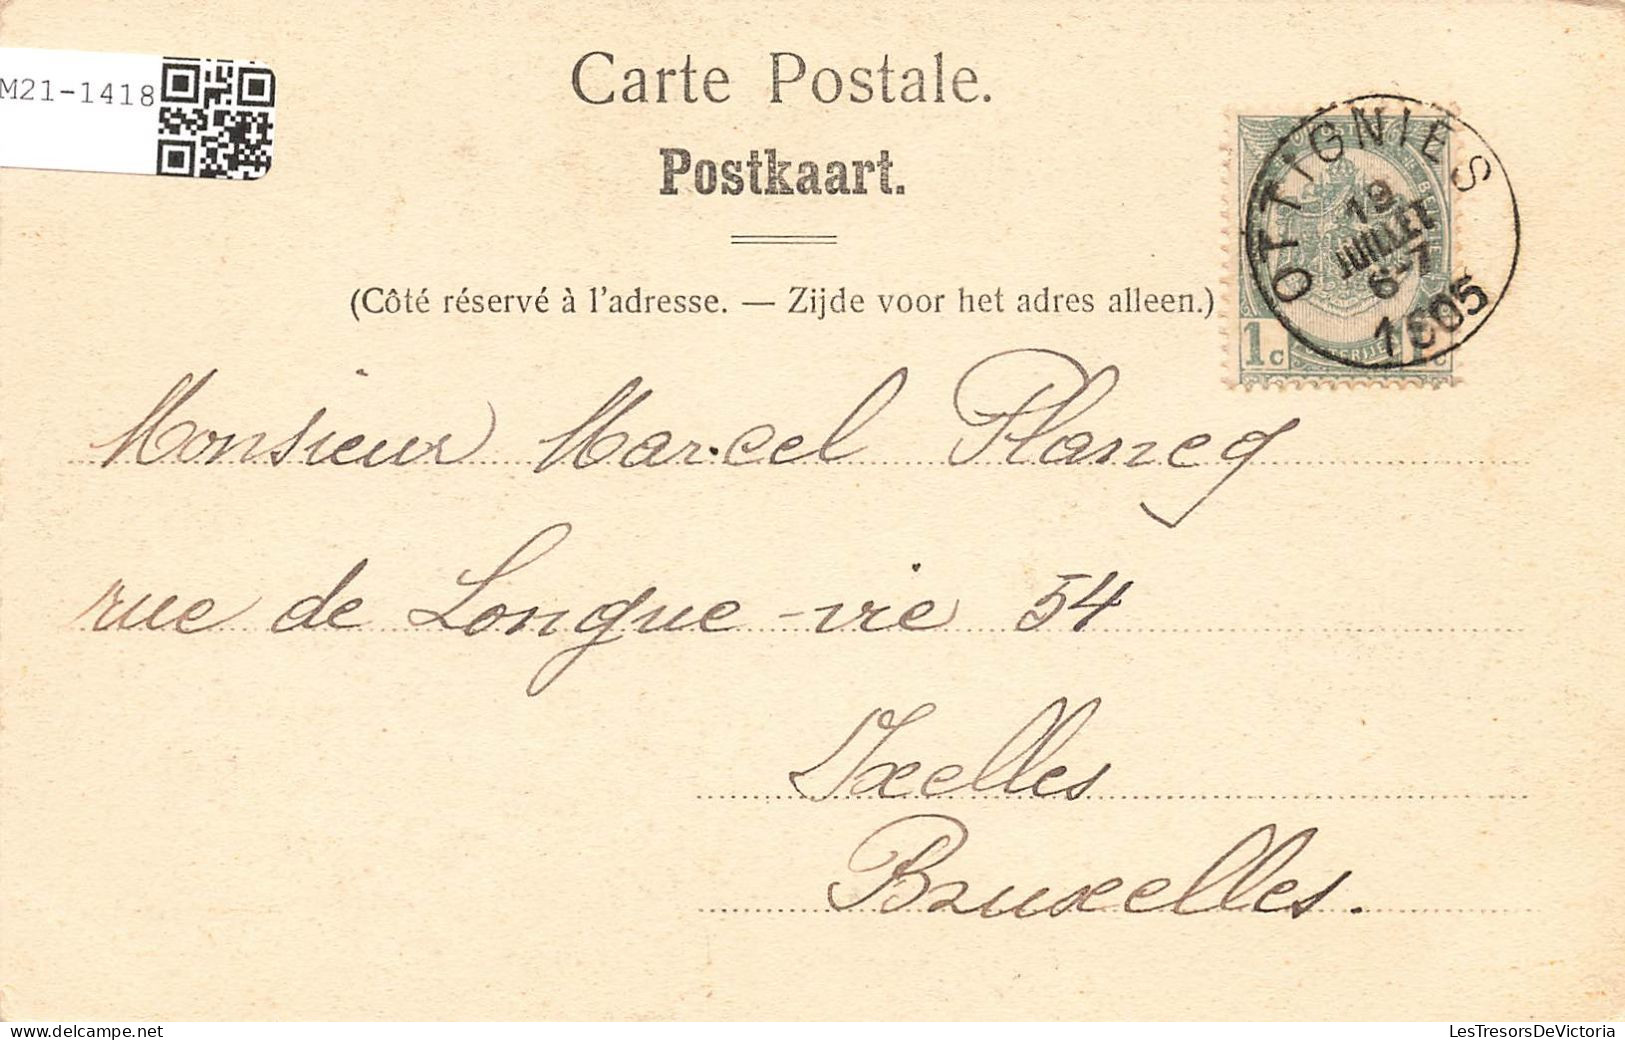 M21-1418
Carte Postale.
Postkaart.
(Côté réservé à l'adresse. — Zijde voor het adres alleen.)
OTTIGNIES
19
JUILLET
6-7
1905
1c
Monsieur Marcel Plancq
rue de Longue-vie 54
Ixelles
Bruxelles.
delcampe.net
LesTresorsDeVictoria